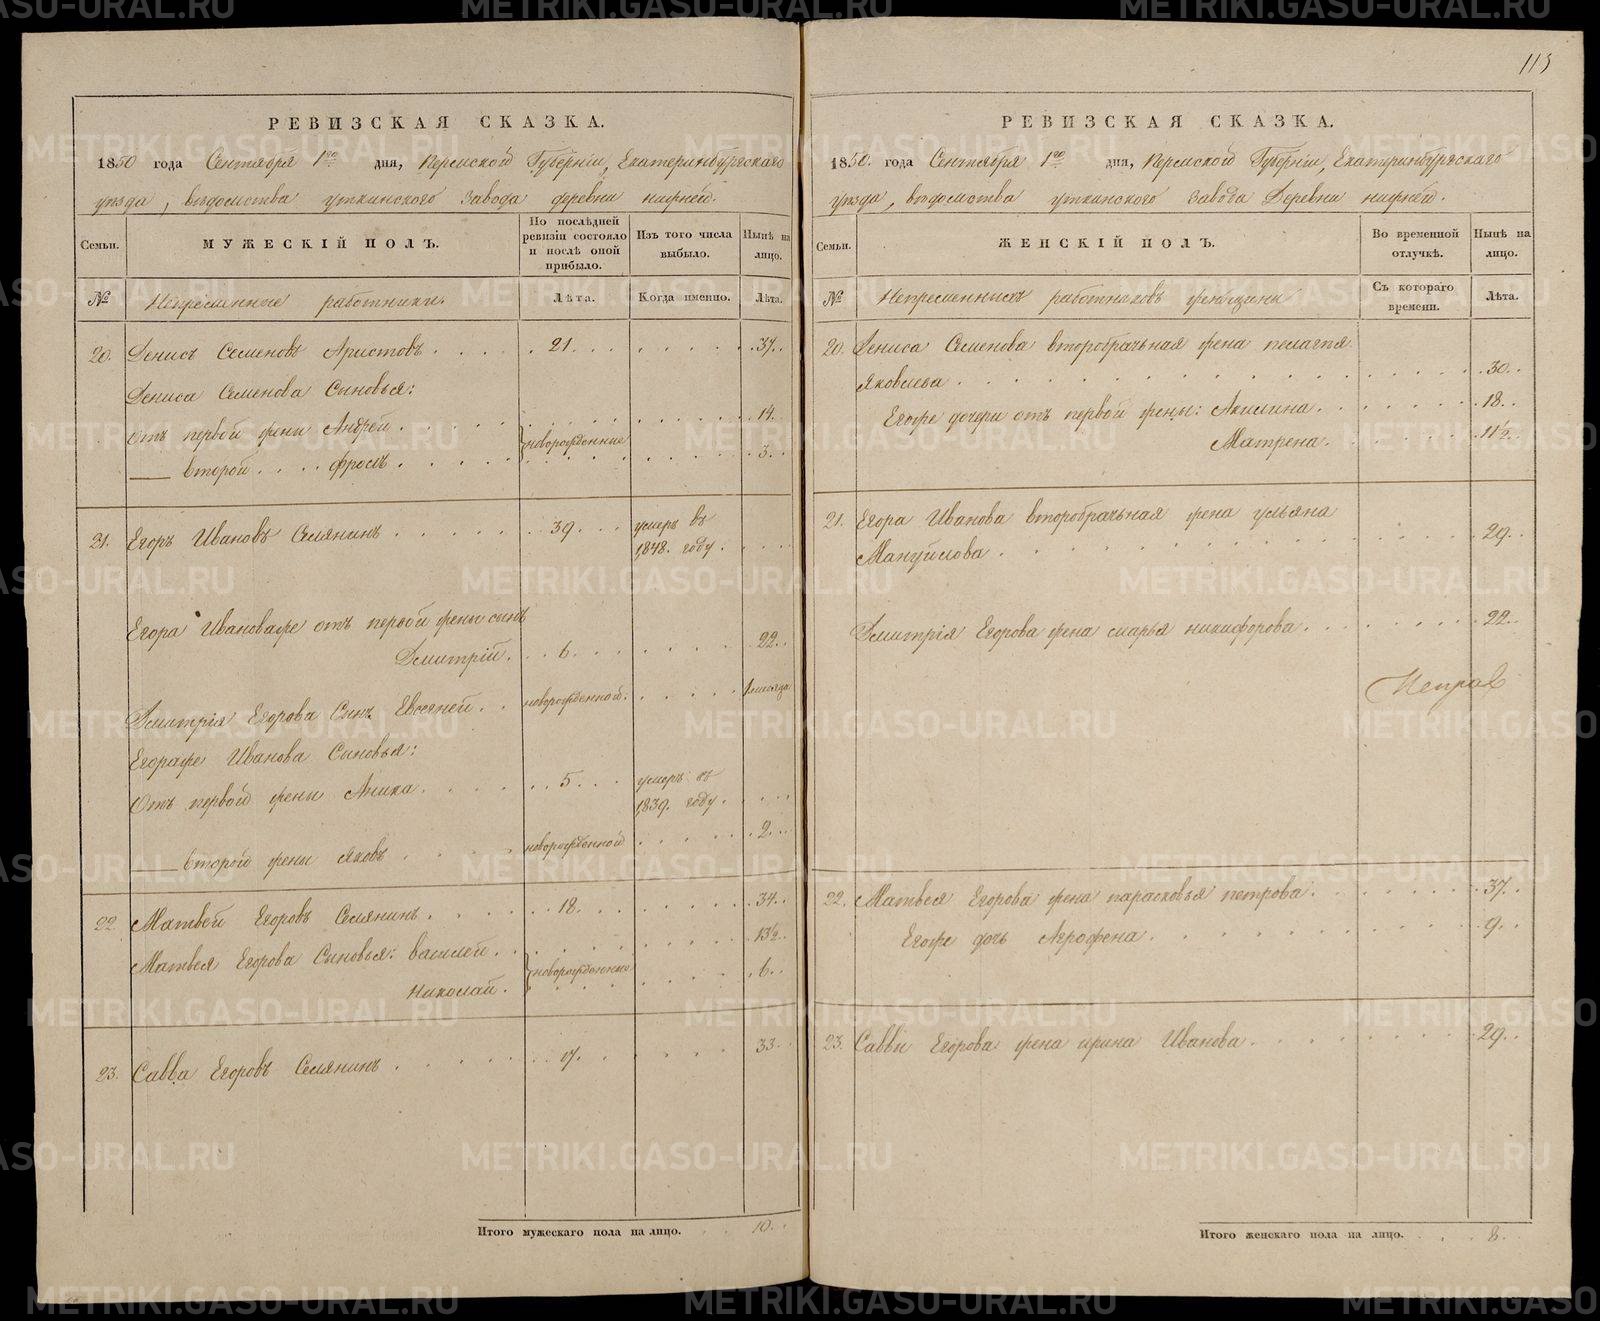 113
РЕВИЗСКАЯ СКАЗКА.
1850 года Сентября 1го дня, Пермской Губерніи, Екатеринбургскаго
уезда, ведомства уткинского завода деревни нижней.
Семьи.
МУЖЕСКІЙ ПОЛЪ.
По послѣдней ревизіи состояло и послѣ оной прибыло.
Изъ того числа выбыло.
Нынѣ на лицо.
№
Непременные работники.
Лѣта.
Когда именно.
Лѣта.
20. Денисъ Семеновъ Аристовъ . . . . 21. . . . . . . . 37.
Дениса Семенова Сыновья:
отъ первой жены Андрей . . . . . новорожденные . . . . 14.
— второй . . . . фролъ . . . . . . . . . 3.
21. Егоръ Ивановъ Селянинъ . . . . . . 39. . . умеръ въ
1848. году . . . .
Егора Ивановаже отъ первой жены сынъ
Дмитрій . . . 6. . . . . . . 22.
Дмитрія Егорова Сынъ Евсегней . . новорожденной . . . . 1 месяца
Егораже Иванова Сыновья:
Отъ первой жены Аника . . . . . . 5. . . умеръ въ
1839. году . . . .
— второй жены Яковъ . . . . новорожденной . . . . 2.
22. Матвей Егоровъ Селянинъ . . . . . 18. . . . . . . 34.
Матвея Егорова Сыновья: василей . . . новорожденные . . . . 13½.
Николай . . . . . . . 6.
23. Савва Егоровъ Селянинъ . . . . . 17. . . . . . 33.
Итого мужескаго пола на лицо. . . 10.
РЕВИЗСКАЯ СКАЗКА.
1850. года Сентября 1го дня, Пермской Губерніи, Екатеринбургскаго
уезда, ведомства уткинского завода Деревни нижней.
Семьи.
ЖЕНСКІЙ ПОЛЪ.
Во временной отлучкѣ.
Нынѣ на лицо.
№
Непременныхъ работниковъ женщины
Съ котораго времени.
Лѣта.
20. Дениса Семенова второбрачьная жена пелагея
Яковлева . . . . . . . . . . . . 30.
Егоже дочери отъ первой жены: Акилина . . . . . . 18.
Матрена . . . . . . 11½.
21. Егора Иванова второбрачьная жена ульяна
Мануйлова . . . . . . . . . . . . 29.
Дмитрія Егорова жена марья никифорова . . . . . . 22.
22. Матвея Егорова жена парасковья петрова . . . . . . 37.
Егоже дочь Агрофена . . . . . . . . . . 9.
23. Саввы Егорова жена ирина Иванова . . . . . . . . 29.
Итого женскаго пола на лицо. . . . 8.
METRIKI.GASO-URAL.RU